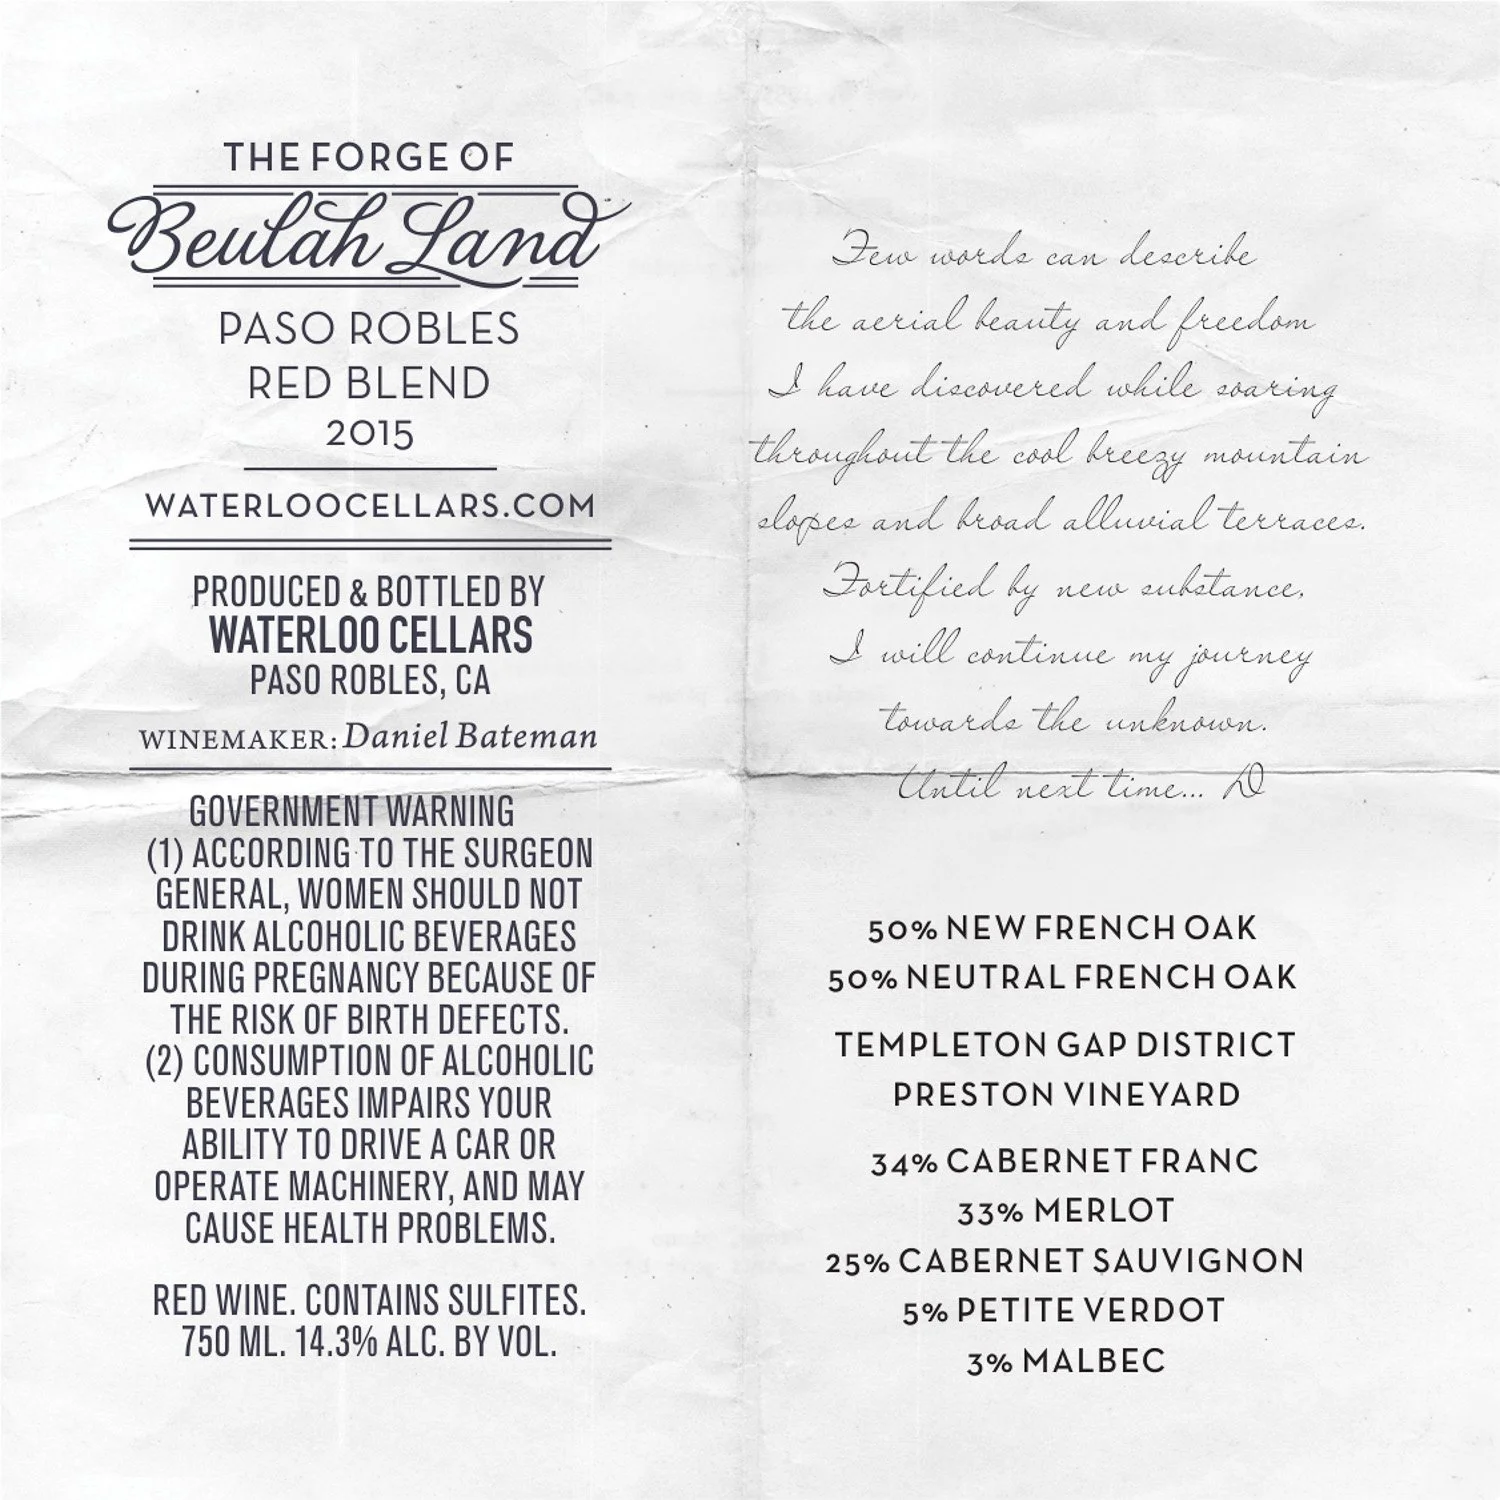 THE FORGE OF
Beulah Land
PASO ROBLES
RED BLEND
2015
WATERLOOCELLARS.COM
PRODUCED & BOTTLED BY
WATERLOO CELLARS
PASO ROBLES, CA
WINEMAKER: Daniel Bateman
GOVERNMENT WARNING
(1) ACCORDING TO THE SURGEON
GENERAL, WOMEN SHOULD NOT
DRINK ALCOHOLIC BEVERAGES
DURING PREGNANCY BECAUSE OF
THE RISK OF BIRTH DEFECTS.
(2) CONSUMPTION OF ALCOHOLIC
BEVERAGES IMPAIRS YOUR
ABILITY TO DRIVE A CAR OR
OPERATE MACHINERY, AND MAY
CAUSE HEALTH PROBLEMS.
RED WINE. CONTAINS SULFITES.
750 ML. 14.3% ALC. BY VOL.
Few words can describe
the aerial beauty and freedom
I have discovered while soaring
throughout the cool breezy mountain
slopes and broad alluvial terraces.
Fortified by new substance,
I will continue my journey
towards the unknown.
Until next time... D
50% NEW FRENCH OAK
50% NEUTRAL FRENCH OAK
TEMPLETON GAP DISTRICT
PRESTON VINEYARD
34% CABERNET FRANC
33% MERLOT
25% CABERNET SAUVIGNON
5% PETITE VERDOT
3% MALBEC